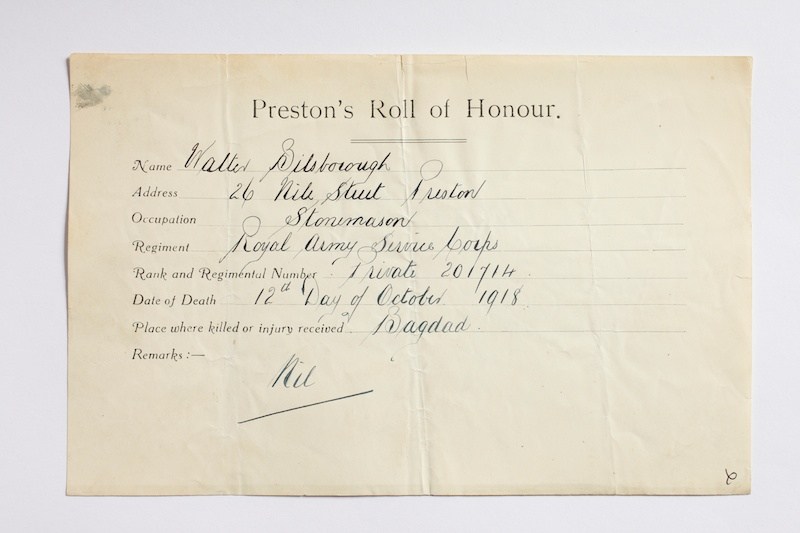 Preston's Roll of Honour.
Name Walter Bilsborough
Address 26 Nile Street Preston
Occupation Stonemason
Regiment Royal Army Service Corps
Rank and Regimental Number Private 201714
Date of Death 12th Day of October 1918
Place where killed or injury received Bagdad.
Remarks:—
Nil